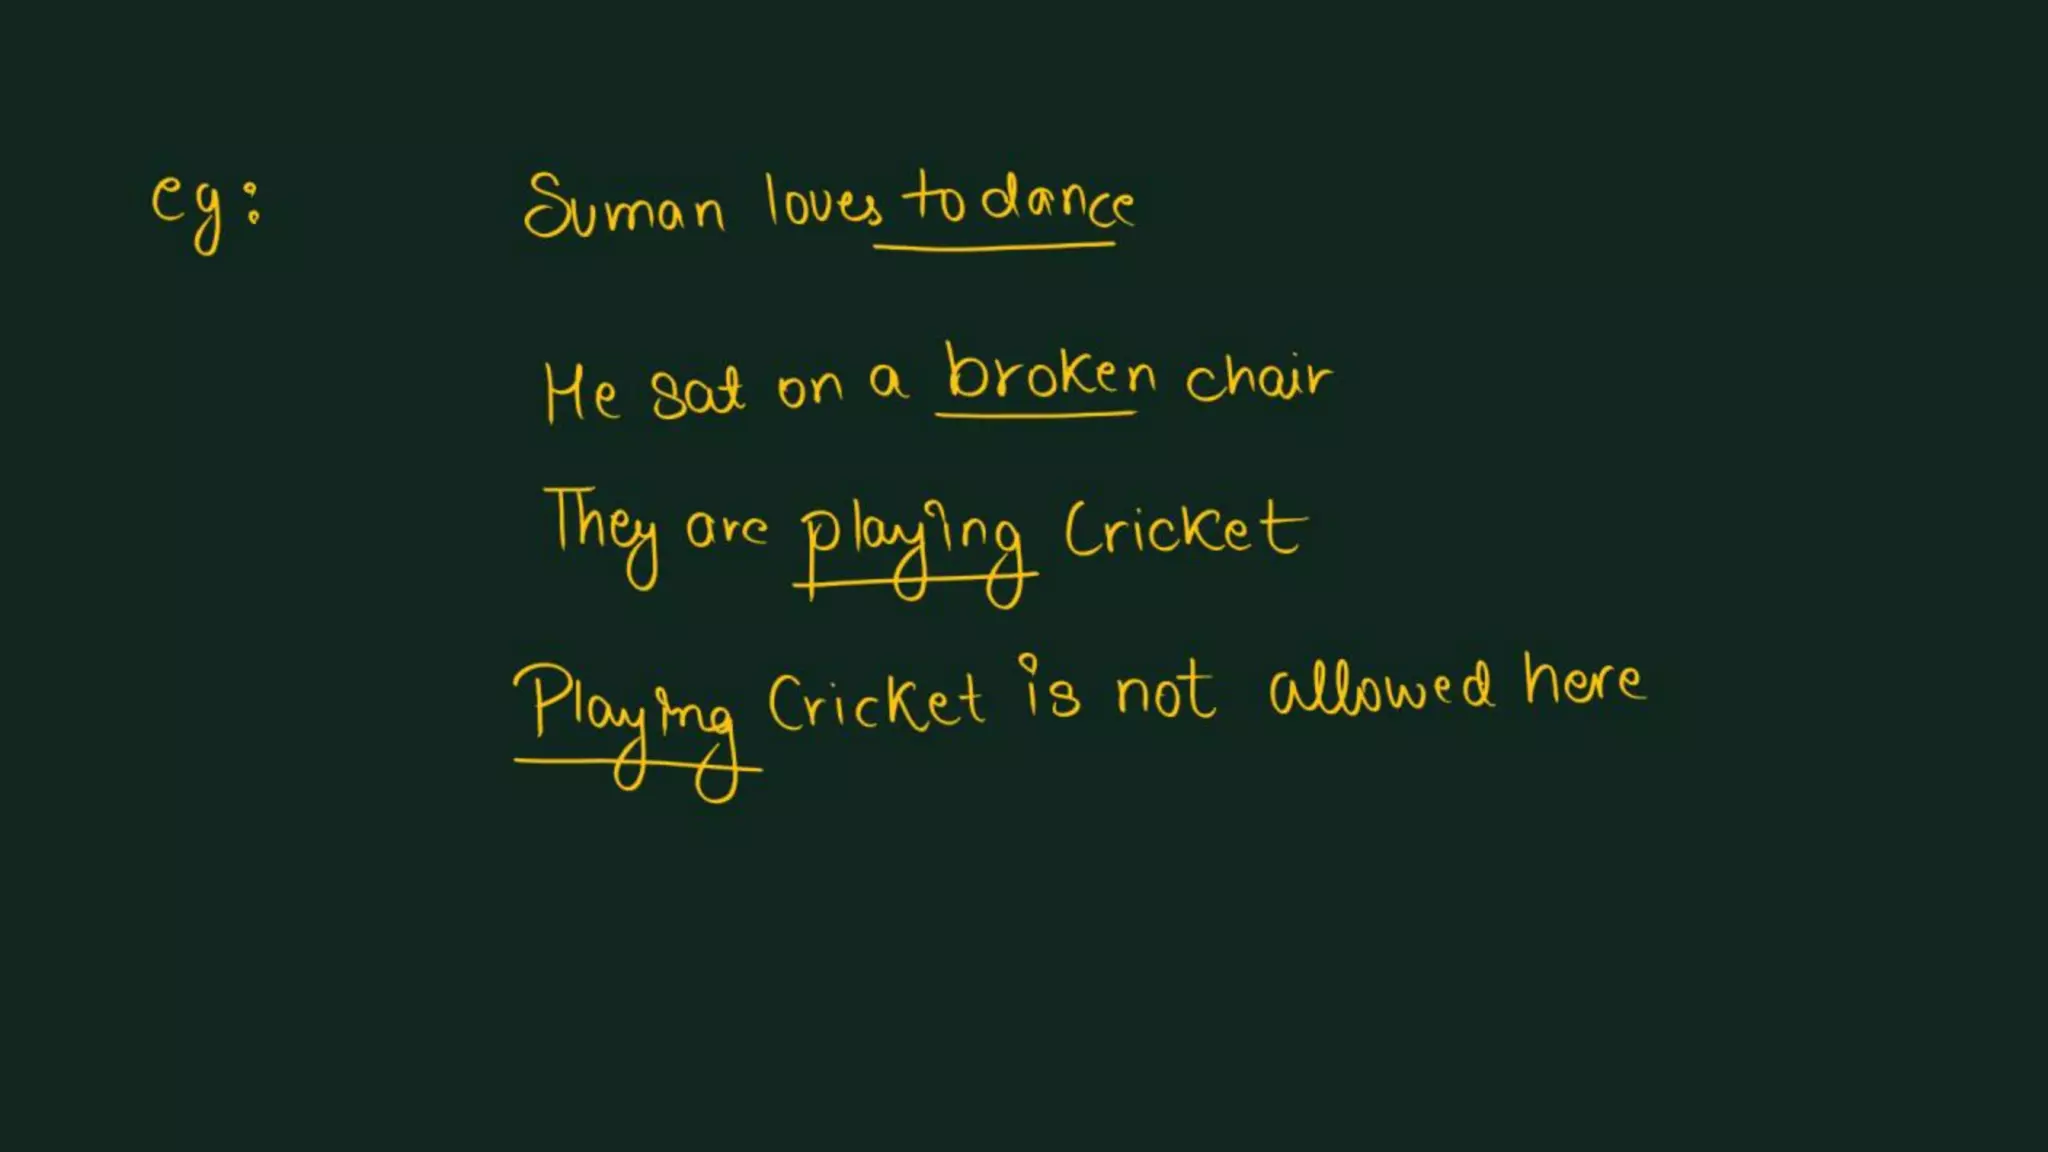 eg: Suman loves to dance
He sat on a broken chair
They are playing Cricket
Playing Cricket is not allowed here